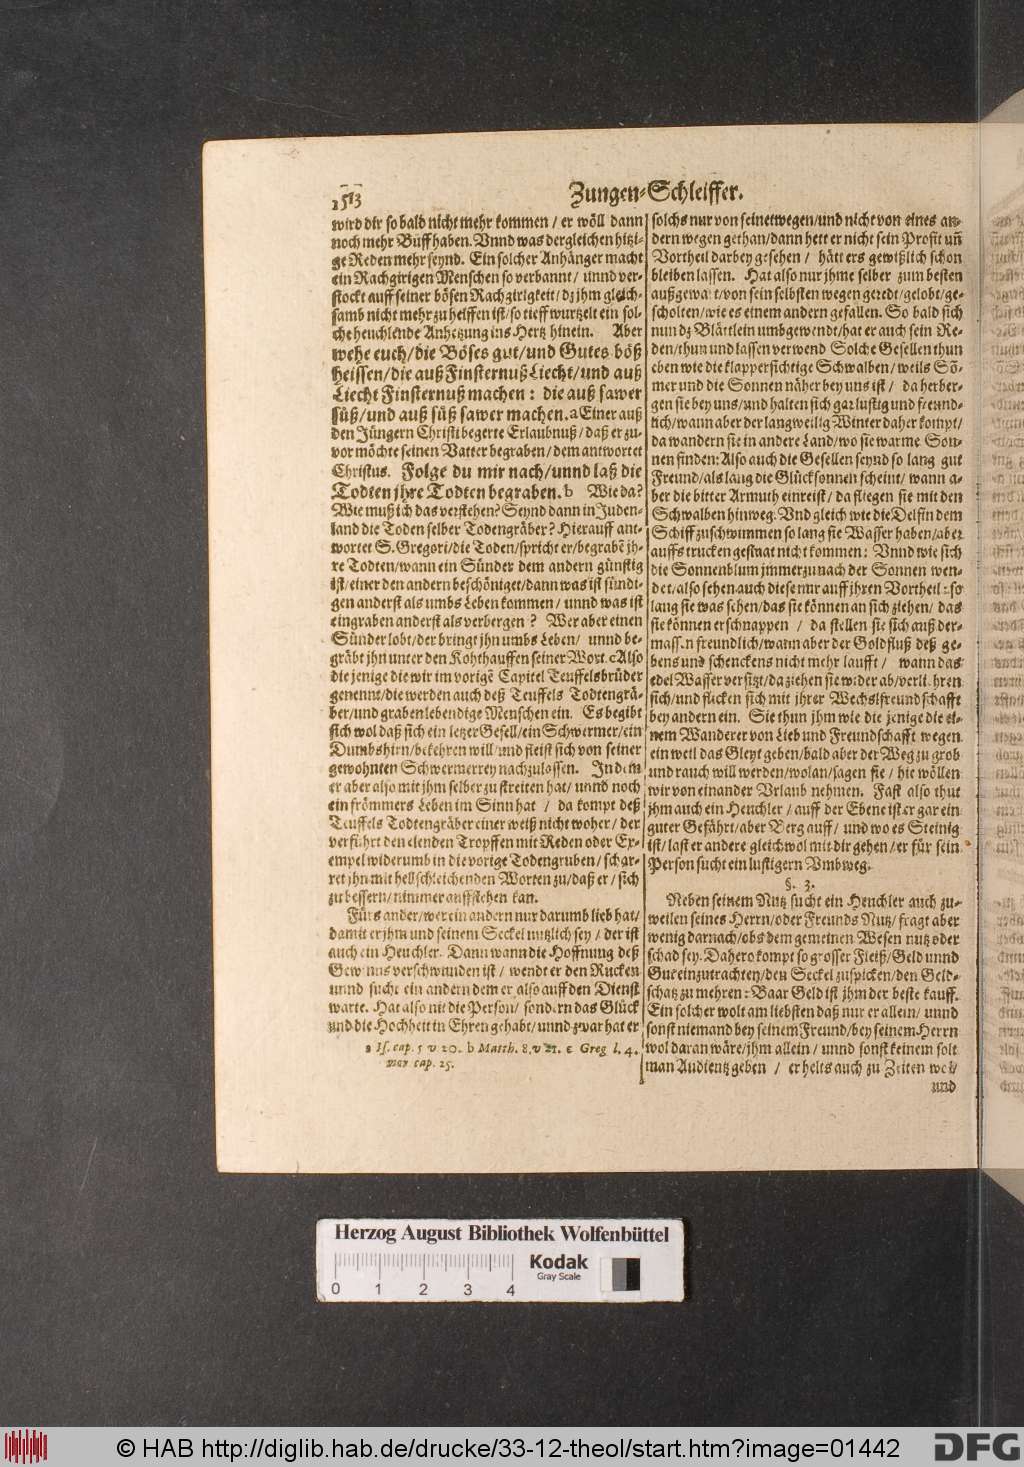 1513
Zungen-Schleiffer.
wird dir so bald nicht mehr kommen / er wöll dann
noch mehr Büff haben. Vnnd was dergleichen hitzi-
ge Reden mehr seynd. Ein solcher Anhänger macht
ein Rachgirigen Menschen so verbannt / unnd ver-
stockt auff seiner bösen Rachgirigkeit / dz jhm gleich-
samb nicht mehr zu helffen ist / so tieff wurtzelt ein sol-
che heuchlende Anhetzung ins Hertz hinein. Aber
wehe euch / die Böses gut / und Gutes böß
heissen / die auß Finsternuß Liecht / und auß
Liecht Finsternuß machen : die auß sawer
süß / und auß süß sawer machen. a Einer auß
den Jüngern Christi begerte Erlaubnuß / daß er zu-
vor möchte seinen Vatter begraben / dem antwortet
Christus. Folge du mir nach / unnd laß die
Todten jhre Todten begraben. b Wie da?
Wie muß ich das verstehen? Seynd dann in Juden-
land die Toden selber Todengräber? Hierauff ant-
wortet S. Gregori / die Toden / spricht er / begrabē jh-
re Todten / wann ein Sünder dem andern günstig
ist / einer den andern beschöniget / dann was ist sündi-
gen anderst als umbs Leben kommen / unnd was ist
eingraben anderst als verbergen ? Wer aber einen
Sünder lobt / der bringt jhn umbs Leben / unnd be-
gräbt jhn unter den Kohthauffen seiner Wort. c Also
die jenige die wir im vorigē Capitel Teuffelsbrüder
genennt / die werden auch deß Teuffels Todtengrä-
ber / und graben lebendige Menschen ein. Es begibt
sich wol daß sich ein letzer Gesell / ein Schwermer / ein
Dumbshirn / bekehren will / und fleist sich von seiner
gewohnten Schwermerrey nachzulassen. In dem
er aber also mit jhm selber zu streiten hat / unnd noch
ein frömmers Leben im Sinn hat / da kompt deß
Teuffels Todtengräber einer weiß nicht woher / der
verführt den elenden Tropffen mit Reden oder Ex-
empel widerumb in die vorige Todengruben / schar-
ret jhn mit hellschleichenden Worten zu / daß er / sich
zu bessern / nimmer auffstehen kan.
Fürs ander / wer ein andern nur darumb lieb hat /
damit er jhm und seinem Seckel nutzlich sey / der ist
auch ein Heuchler. Dann wann die Hoffnung deß
Gewinns verschwunden ist / wendt er den Rucken
unnd sucht ein andern dem er also auff den Dienst
warte. Hat also nit die Person / sondern das Glück
und die Hochheit in Ehren gehabt / unnd zwar hat er
a Is. cap. 5 v 20. b Matth. 8. v 21. c Greg l. 4.
mor cap. 25.
solchs nur von seinetwegen / und nicht von eines an-
dern wegen gethan / dann hett er nicht sein Profit uñ
Vortheil darbey gesehen / hätt ers gewißlich schon
bleiben lassen. Hat also nur jhme selber zum besten
außgewart / von sein selbsten wegen geredt / gelobt / ge-
scholten / wie es einem andern gefallen. So bald sich
nun dz Blättlein umbgewendt / hat er auch sein Re-
den / thun und lassen verwend Solche Gesellen thun
eben wie die klappersichtige Schwalben / weils Sō-
mer und die Sonnen näher bey uns ist / da herber-
gen sie bey uns / und halten sich gar lustig und freund-
lich / wann aber der langweilig Winter daher kompt /
da wandern sie in andere Land / wo sie warme Son-
nen finden: Also auch die Gesellen seynd so lang gut
Freund / als lang die Glücksonnen scheint / wann a-
ber die bitter Armuth einreist / da fliegen sie mit den
Schwalben hinweg. Vnd gleich wie die Delfin dem
Schiff zuschwummen so lang sie Wasser haben / aber
auffs trucken gestaat nicht kommen : Vnnd wie sich
die Sonnenblum jmmerzu nach der Sonnen wen-
det / also sehen auch diese nur auff jhren Vortheil : so
lang sie was sehen / das sie können an sich ziehen / das
sie können erschnappen / da stellen sie sich auß der-
massen freundlich / wann aber der Goldfluß deß ge-
bens und schenckens nicht mehr laufft / wann das
edel Wasser versitzt / da ziehen sie wider ab / verlihren
sich / und flicken sich mit jhrer Wechslfreundschafft
bey andern ein. Sie thun jhm wie die jenige die ei-
nem Wanderer von Lieb und Freundschafft wegen
ein weil das Gleyt geben / bald aber der Weg zu grob
und rauch will werden / wolan / sagen sie / hie wöllen
wir von einander Vrlaub nehmen. Fast also thut
jhm auch ein Heuchler / auff der Ebene ist er gar ein
guter Gefährt / aber Berg auff / und wo es Steinig
ist / last er andere gleichwol mit dir gehen / er für sein
Person sucht ein lustigern Vmbweg.
§. 3.
Neben seinem Nutz sucht ein Heuchler auch zu-
weilen seines Herrn / oder Freunds Nutz / fragt aber
wenig darnach / obs dem gemeinen Wesen nutz oder
schad sey. Dahero kompt so grosser Fleiß / Geld unnd
Gut einzutrachten / den Seckel zuspicken / den Geld-
schatz zu mehren : Baar Geld ist jhm der beste kauff.
Ein solcher wolt am liebsten daß nur er allein / unnd
sonst niemand bey seinem Freund / bey seinem Herrn
wol daran wäre / jhm allein / unnd sonst keinem solt
man Audientz geben / er helts auch zu Zeiten wol /
und
Herzog August Bibliothek Wolfenbüttel
Kodak
Gray Scale
0 1 2 3 4
© HAB http://diglib.hab.de/drucke/33-12-theol/start.htm?image=01442
DFG